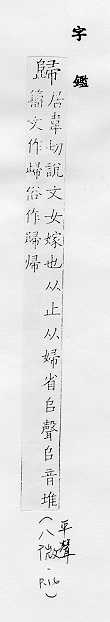 字鑑
歸
居韋切說文女嫁也从止从婦省𠂤聲𠂤音堆
籒文作㱕俗作歸帰
平聲
(八微.P.16)